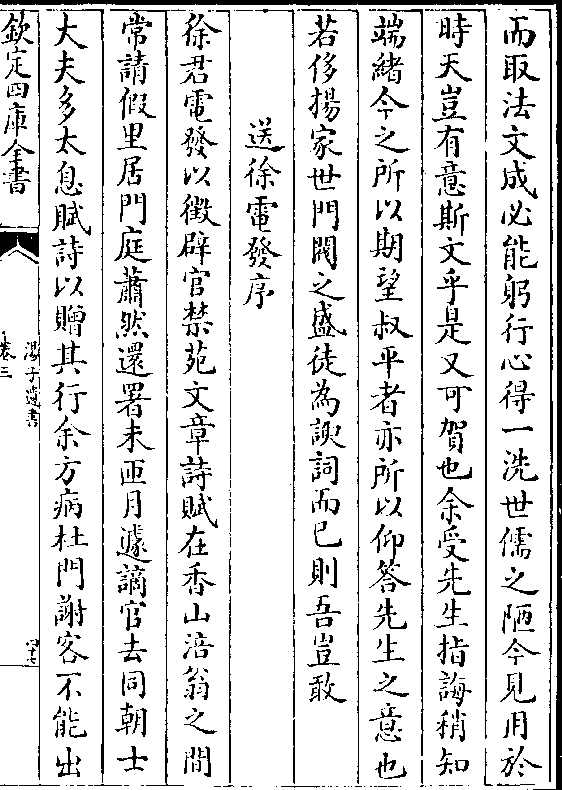 而取法文成必能躬行心得一洗世儒之陋今見用於
時天豈有意斯文乎是又可賀也余受先生指誨稍知
端緒今之所以期望叔平者亦所以仰答先生之意也
若侈揚家世門閥之盛徒為諛詞而已則吾豈敢
送徐電發序
徐君電發以徵辟官禁苑文章詩賦在香山涪翁之間
常請假里居門庭蕭然還署未匝月遽謫官去同朝士
大夫多太息賦詩以贈其行余方病杜門謝客不能出
欽定四庫全書
湯子遺書
卷三
四十七